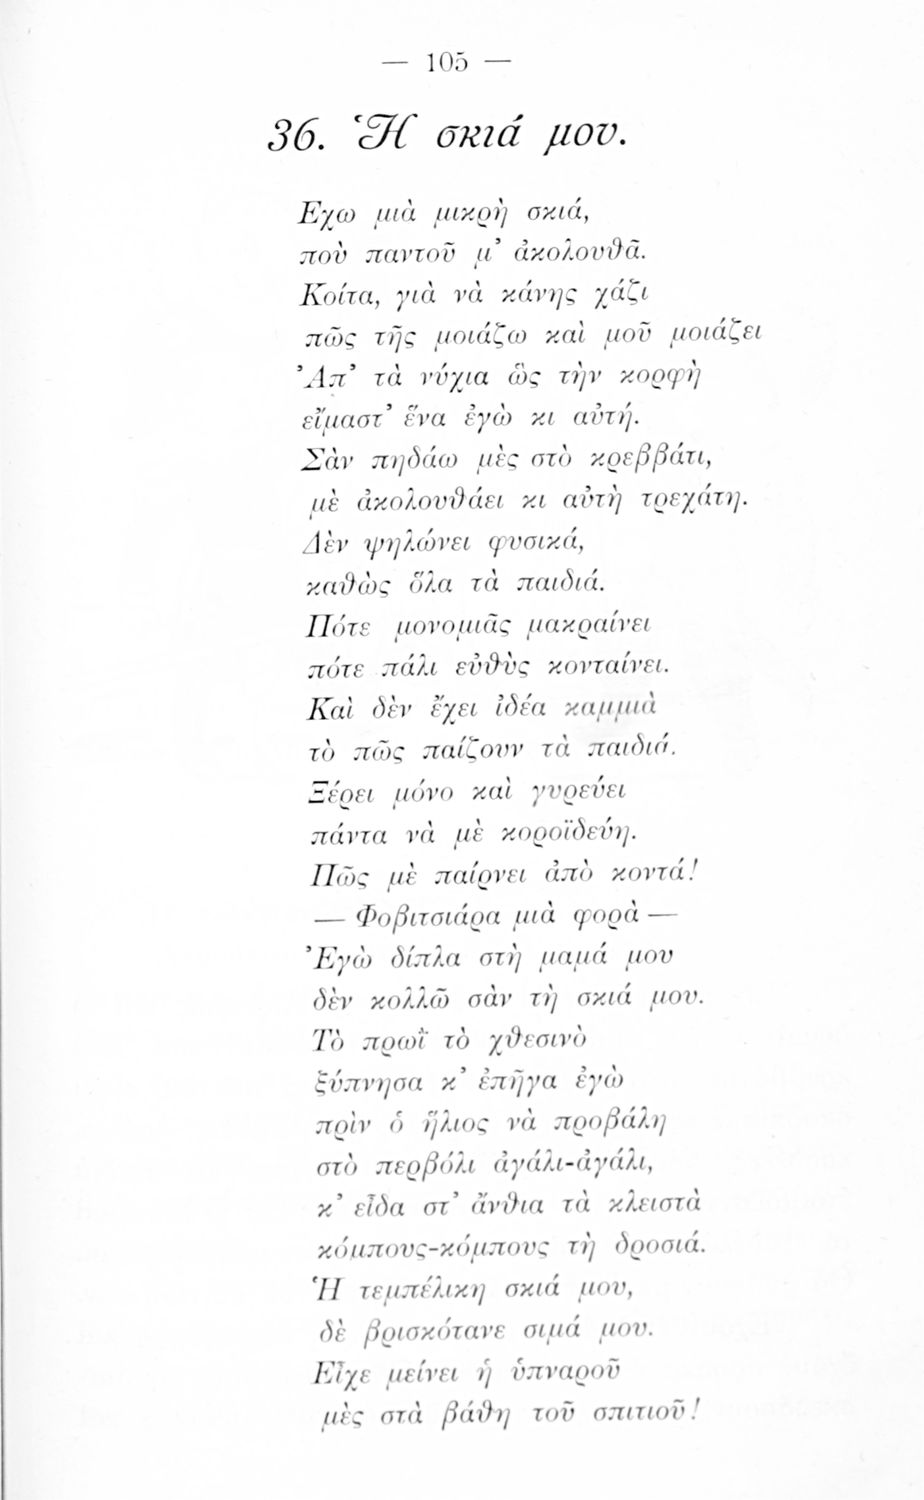 — 105 —
36. Ἡ σκιά μου.
Εχω μιὰ μικρὴ σκιά,
ποὺ παντοῦ μ᾿ ἀκολουθᾶ.
Κοίτα, γιὰ νὰ κάνης χάζι
πῶς τῆς μοιάζω καὶ μοῦ μοιάζει
Ἀπ᾿ τὰ νύχια ὣς τὴν κορφὴ
εἴμαστ᾿ ἕνα ἐγὼ κι αὐτή.
Σὰν πηδάω μὲς στὸ κρεββάτι,
μὲ ἀκολουθάει κι αὐτὴ τρεχάτη.
Δὲν ψηλώνει φυσικά,
καθὼς ὅλα τὰ παιδιά.
Πότε μονομιᾶς μακραίνει
πότε πάλι εὐθὺς κονταίνει.
Καὶ δὲν ἔχει ἰδέα καμμιὰ
τὸ πῶς παίζουν τὰ παιδιά.
Ξέρει μόνο καὶ γυρεύει
πάντα νὰ μὲ κοροϊδεύη.
Πῶς μὲ παίρνει ἀπὸ κοντά!
— Φοβιτσιάρα μιὰ φορὰ —
Ἐγὼ δίπλα στὴ μαμά μου
δὲν κολλῶ σὰν τὴ σκιά μου.
Τὸ πρωῒ τὸ χθεσινὸ
ξύπνησα κ᾿ ἐπῆγα ἐγὼ
πρὶν ὁ ἥλιος νὰ προβάλη
στὸ περβόλι ἀγάλι-ἀγάλι,
κ᾿ εἶδα στ᾿ ἄνθια τὰ κλειστὰ
κόμπους-κόμπους τὴ δροσιά.
Ἡ τεμπέλικη σκιά μου,
δὲ βρισκότανε σιμά μου.
Εἶχε μείνει ἡ ὑπναροῦ
μὲς στὰ βάθη τοῦ σπιτιοῦ!